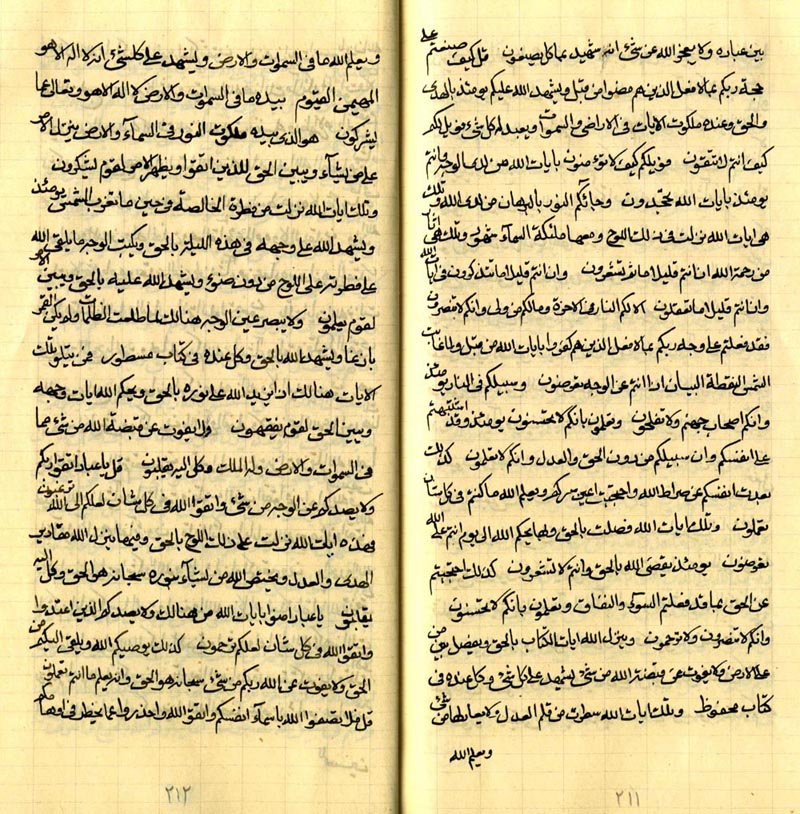 بين عباده ولا يعجز الله عن شيء انه شهيد عما كل يصنعون قل كيف صنعتم على
حجة ربكم عما قد فعل الذين هم مضوا من قبل ويشهد الله عليكم يومئذ بالهدى
والحق وعنده ملكوت الايات في الاراضي والسموات ويعبد له كل شيء فويل لكم
كيف انتم لا تتقون فويلكم كيف لا تؤمنون بايات الله من لدى الوجه وانتم
يومئذ بايات الله تجحدون وجائكم النور بالبرهان من لدى الله وتلك
هي ايات الله نزلت في ذلك اللوح ومعها ملئكة السمآء وتلك هي اثار
من رحمة الله ان انتم قليلا ما تشعرون وان انتم قليلا ما تتذكرون في ايات الله
وان انتم قليلا ما تعقلون الا لكم النار في الاخرة وما لكم من ولى وانكم لا تنصرون
فقد فعلتم على وجه ربكم عما قد فعل الذين هم كفروا بايات الله من قبل ولما غابت
الشمس النقطة البيان اذا انتم عن الوجه تعرضون وسبيلكم في النار يومئذ
وانكم اصحاب جهنم ولا تفلحون وتعلمون بانكم لا تحسنون يومئذ وقد اشتبهتم
على انفسكم وان سبيلكم من دون الحق والعدل وانكم لا تعلمون كذلك
بعدت انفسكم عن صراط الله واحتجبت اعين سركم ويعلم الله ما كنتم في كل شان
تعملون وتلك ايات الله فصلت بالحق وفيها يحكم الله الى يوم انتم على الله
تعرضون يومئذ يقضى الله بالحق وانتم لا تشعرون كذلك احتجبتم
عن الحق بما قد فعلتم السوء والنفاق وتعلمون بانكم لا تحسنون
وانكم لا تنصرون ولا ترحمون وينزل الله ايات الكتاب بالحق ويفصل بين من
على الارض ولا يفوت عن قبضته الله من شيء يشهد على كل شيء وكل عنده في
كتاب محفوظ وتلك ايات الله سطرت من قلم العدل ولا يعادلها من شيء
ويعلم الله
٢١١
ويعلم الله ما في السموات والارض ويشهد على كلشيء انه لا اله الا هو
المهيمن القيوم بيده ما في السموات والارض لا اله الا هو وتعالى عما
يشركون هو الذي بيده ملكوت النور في السمآء والارض ينزل الامر
على من يشآء ويبين الحق للذين اتقوا ويظهر الامر لقوم يشكرون
وتلك ايات الله نزلت من فطرة الخالصة في حين ما تغرب الشمس يومئذ
ويشهد الله على وجهه في هذه الليلة بالحق ويكتب الوجه ما يلقى الله
على فطرته على اللوح من دون صنوء ويشهد الله عليه بالحق ويبين الامر
لقوم يعلمون ولا يبصر عين الوجه هنالك لما طلعت الظلمات ولم يكن القمر
بازغا ويشهد الله بالحق وكل عنده في كتاب مسطور فمن يتلو تلك
الايات هنالك اذا يزيد الله على نوره بالحق ويحكم الله ايات وجهه
ويبين الحق لقوم يفقهون ولا يفوت عن قبضة الله من شيء مما
في السموات والارض وله الملك وكل اليه يقلبون قل يا عباد اتقوا ربكم
ولا يصدكم عن الوجه من شيء واتقوا الله في كل شان لعلكم الى الله ترجعون
وهذه ايات الله نزلت على ذلك اللوح بالحق وفيها ينزل الله مقادير
الهدى والعدل ويختص الله من يشآء بنوره سبحانه هو الحق وكل اليه
يقلبون يا عباد امنوا بايات الله من هنالك ولا يصدكم الذين اعتدوا
واتقوا الله في كل شان لعلكم ترحمون كذلك يوصيكم الله ويلقى اليكم من
الحق ولا يفوت عن الله ربكم من شيء سبحانه هو الحق وانه يعلم ما انتم تعملون
قل فلا تصفوا الله باسمآء انفسكم واتقوا الله واحذروا عما يخطر في اوهامكم
٢١٢